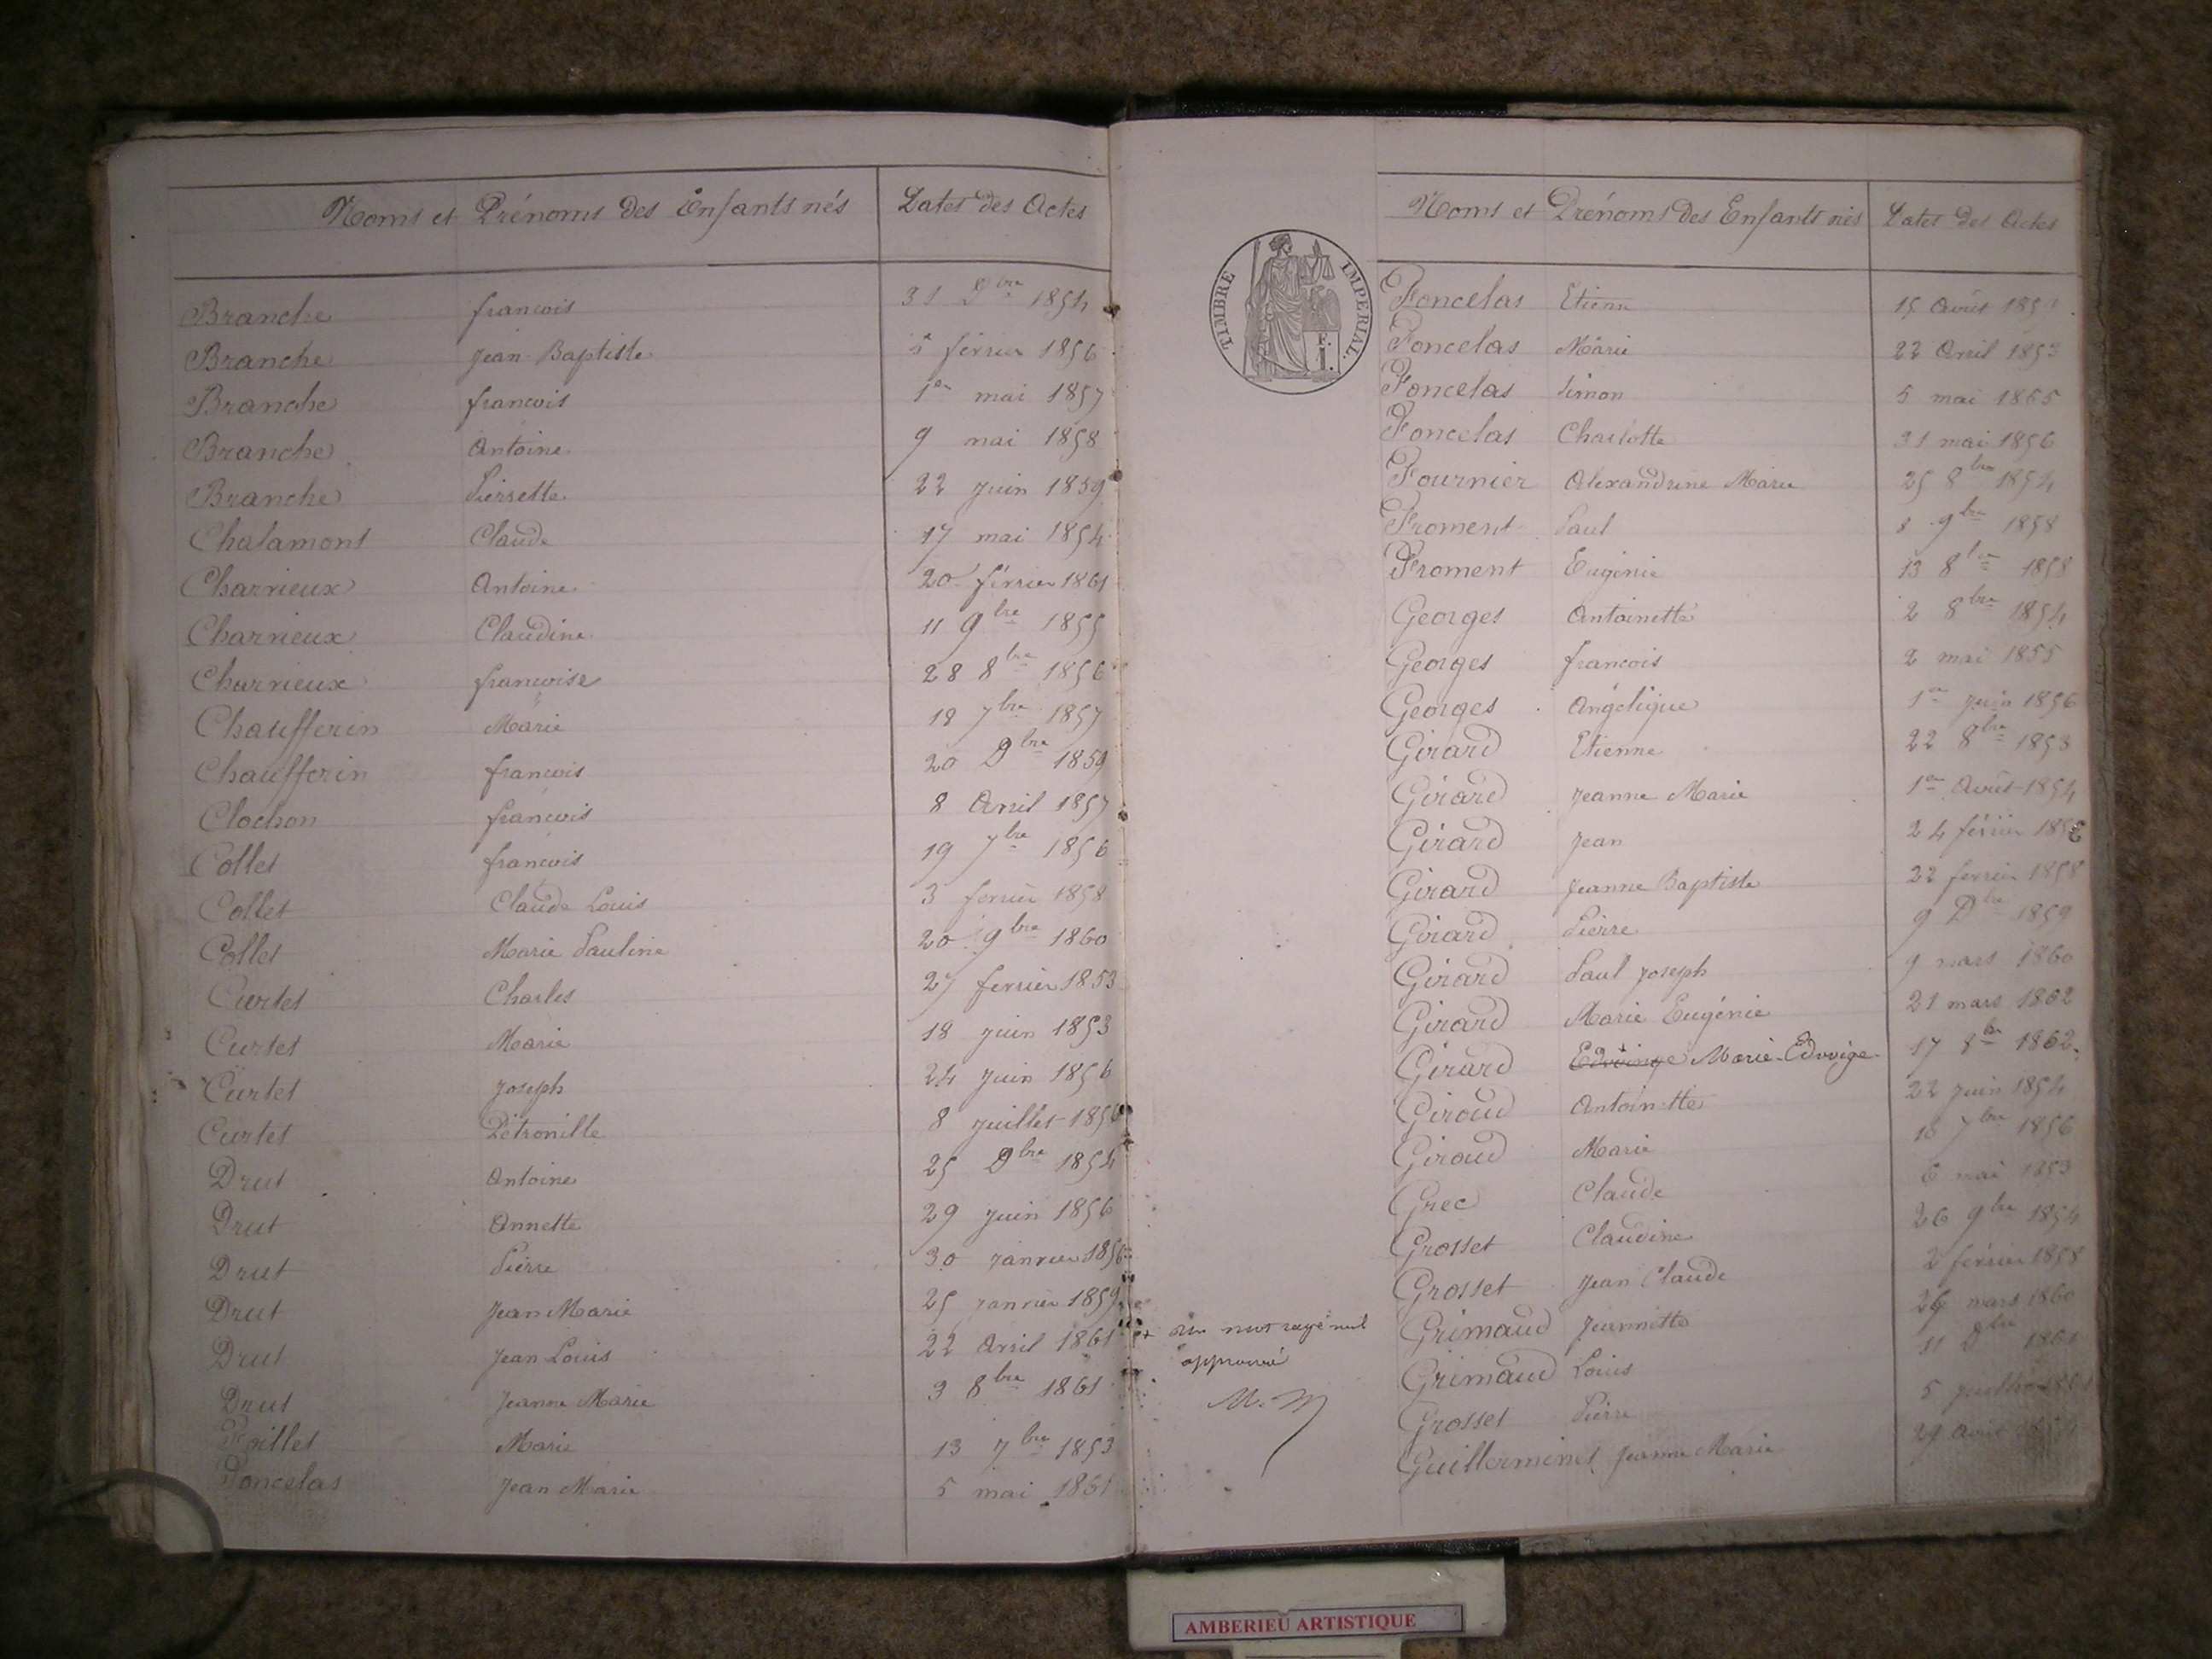 Noms et Prénoms des Enfants nés Dates des Actes
Branche françois 31 Dbre 1854
Branche Jean-Baptiste 5 février 1856
Branche françois 1er mai 1857
Branche Antoine 9 mai 1858
Branche Pierrette 22 juin 1859
Chalamont Claude 17 mai 1854
Charvieux Antoine 20 février 1861
Charvieux Claudine 11 9bre 1855
Charvieux françoise 28 8bre 1856
Chaufferin Marie 18 7bre 1857
Chaufferin françois 20 Dbre 1859
Clochon françois 8 Avril 1857
Collet françois 19 7bre 1856
Collet Claude Louis 3 février 1858
Collet Marie Pauline 20 9bre 1860
Curtet Charles 27 février 1853
Curtet Marie 18 juin 1853
Curtet Joseph 24 juin 1856
Curtet Pétronille 8 juillet 1856
Drut Antoine 25 Dbre 1854
Drut Annette 29 juin 1856
Drut Pierre 30 janvier 1856
Drut Jean Marie 25 janvier 1859
Drut Jean Louis 22 Avril 1861
Drut Jeanne Marie 3 8bre 1861
Faillet Marie 13 7bre 1853
Foncelas Jean Marie 5 mai 1861
TIMBRE IMPERIAL.
Noms et Prénoms des Enfants nés Dates des Actes
Foncelas Etienn 15 Août
Foncelas Marie 22 Avril 1853
Foncelas Simon 5 mai 1855
Foncelas Charlotte 31 mai 1856
Fournier Alexandrine Marie 25 8bre 1854
Froment Paul 8 9bre 1858
Froment Eugénie 13 8bre 1858
Georges Antoinette 2 8bre 1854
Georges françois 2 mai 1855
Georges Angélique 1er juin 1856
Girard Etienne 22 8bre 1853
Girard Jeanne Marie 1er Août 1854
Girard Jean 24 février 1856
Girard Jeanne Baptiste 22 février 1858
Girard Pierre 9 Dbre 1859
Girard Paul Joseph 9 mars 1860
Girard Marie Eugénie 21 mars 1862
Girard Marie-Edwige 17 8bre 1862
Giroud Antoinette 22 juin 1854
Giroud Marie 18 7bre 1856
Grec Claude 6 mai 1853
Grosset Claudine 26 9bre 1854
Grosset Jean Claude 2 février 1858
Grimaud Jeannette 26 mars 1860
Grimaud Louis 11 Dbre 1861
Grosset Pierre 5 juillet
Guillerminet Jeanne Marie 29
+ un mot rayé nul
approuvé
AMBERIEU ARTISTIQUE